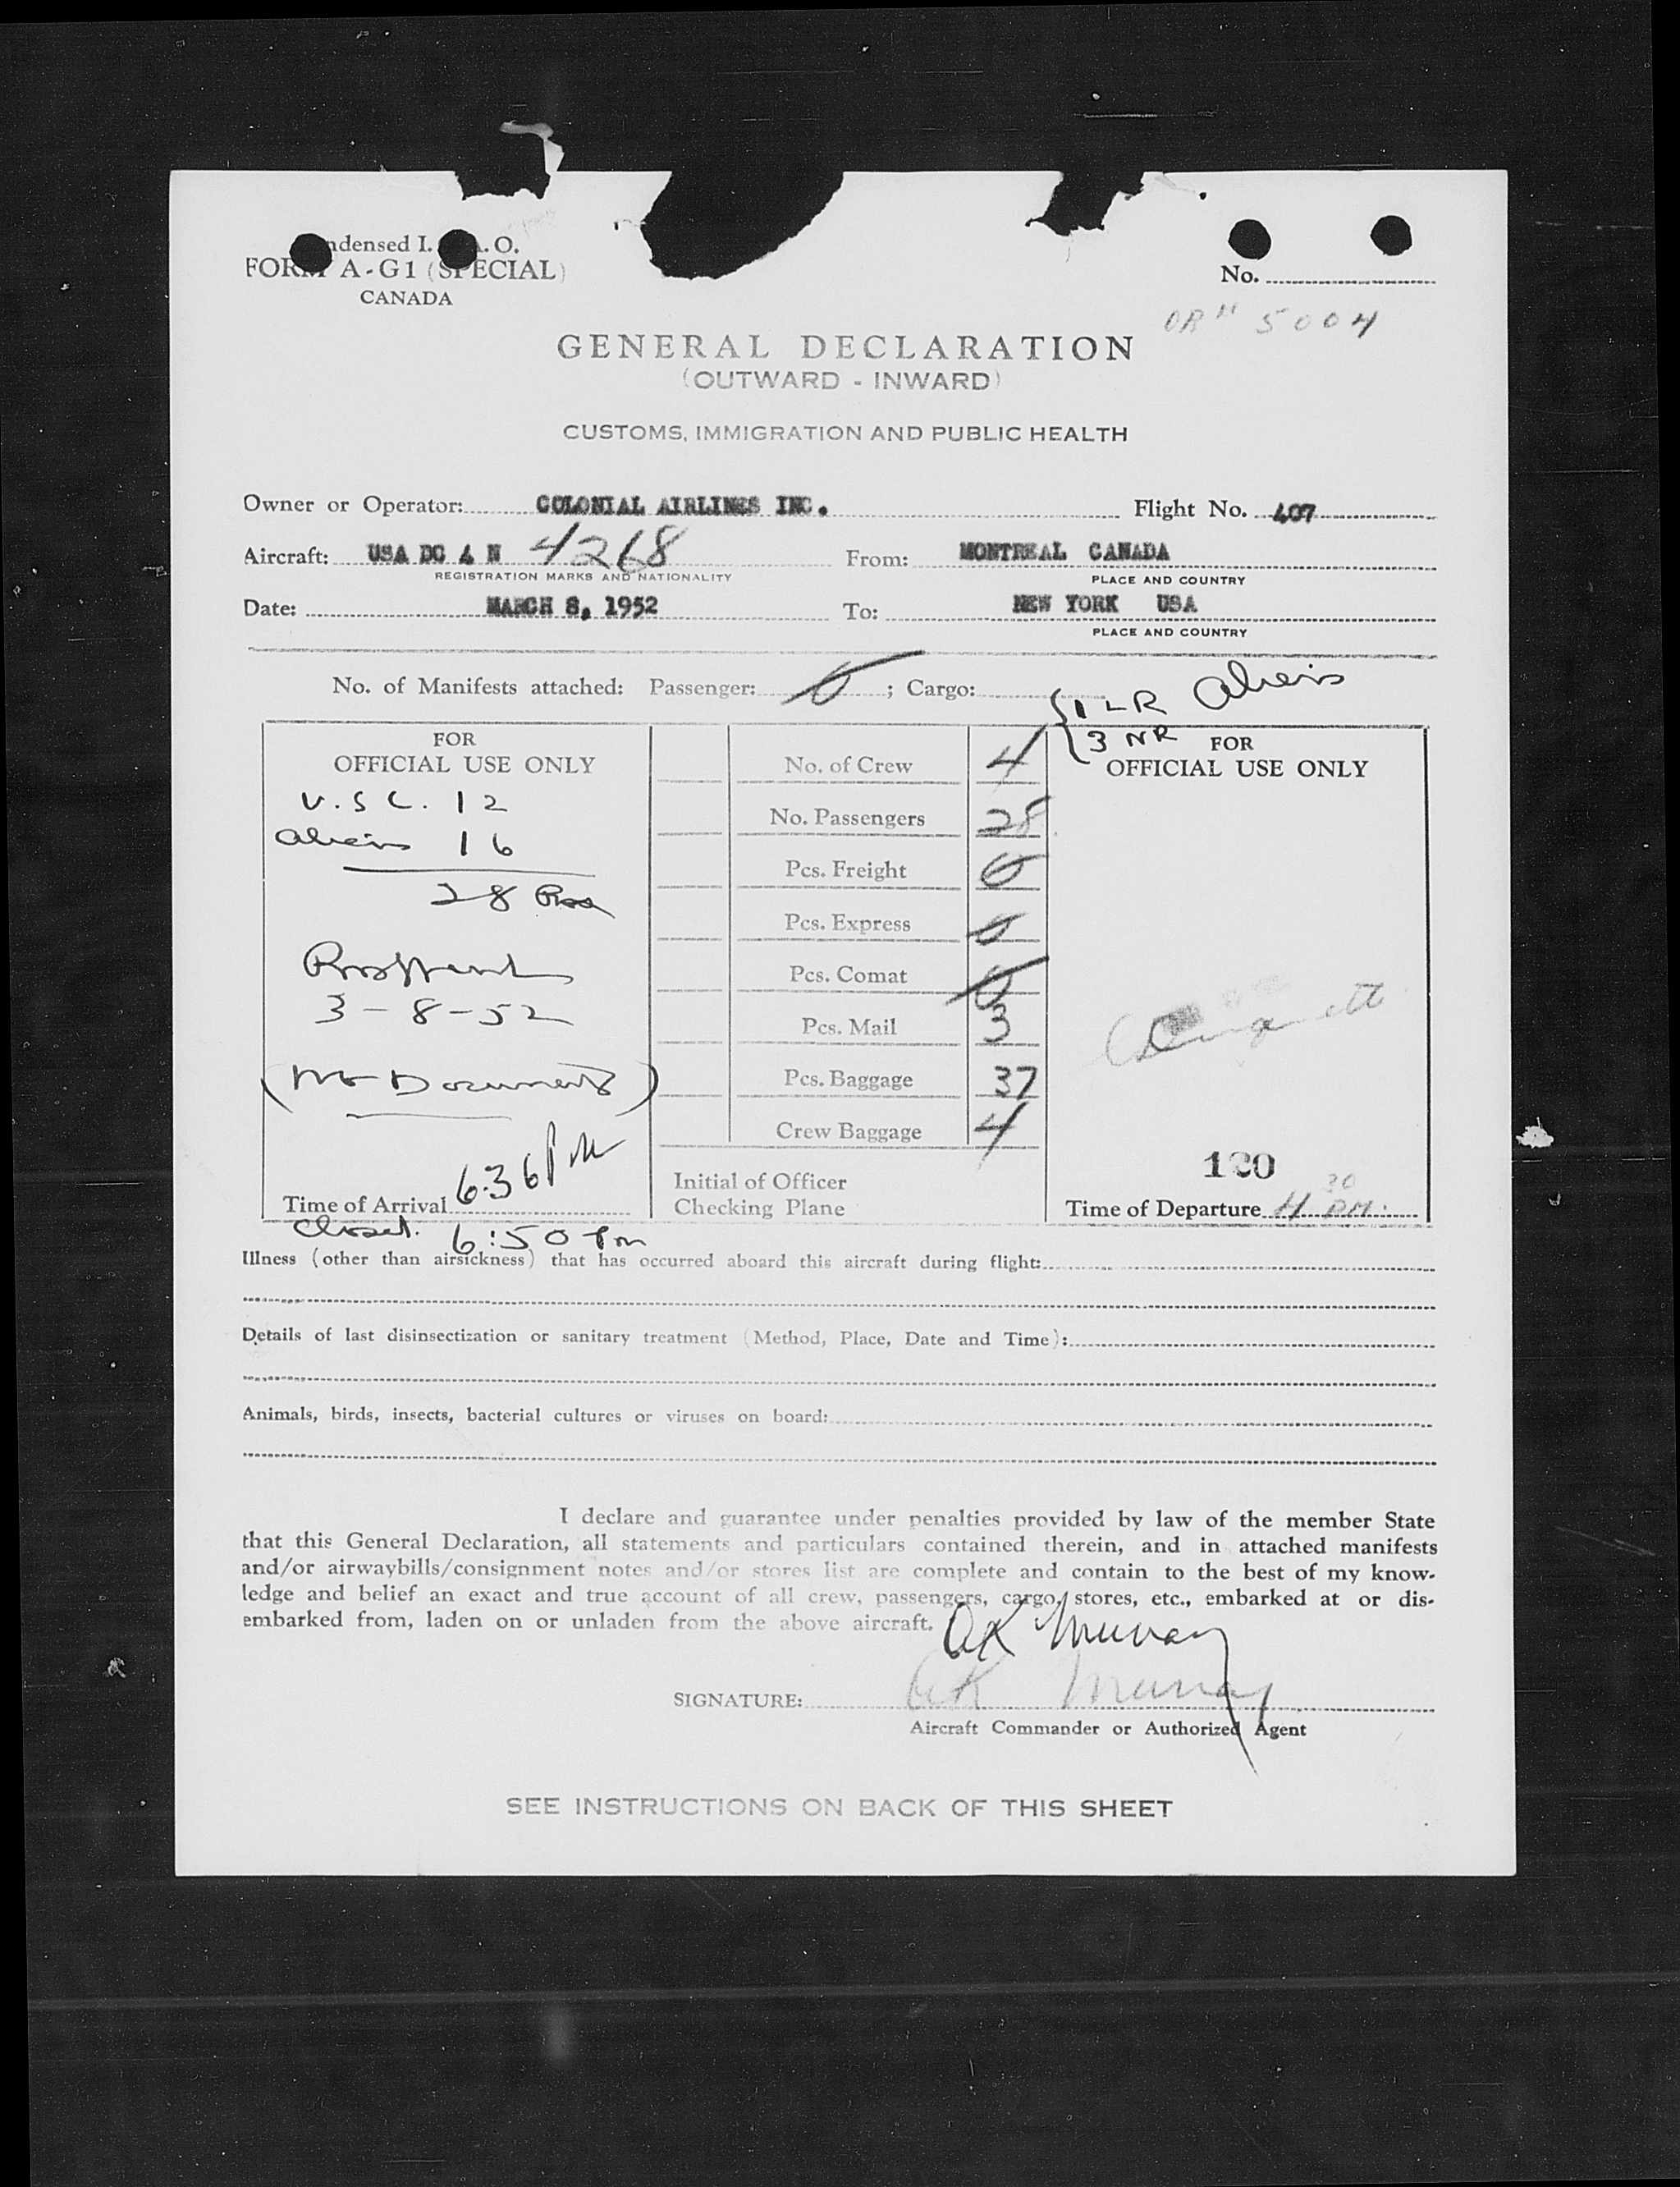 ndensed I. A. O.
FORM A-G1 (SPECIAL)
CANADA
No.
5004
GENERAL DECLARATION
(OUTWARD - INWARD)
CUSTOMS, IMMIGRATION AND PUBLIC HEALTH
Owner or Operator: COLONIAL AIRLINES INC. Flight No. 407
Aircraft: USA DC 4 N 4268 From: MONTREAL CANADA
REGISTRATION MARKS AND NATIONALITY PLACE AND COUNTRY
Date: MARCH 8, 1952 To: NEW YORK USA
PLACE AND COUNTRY
No. of Manifests attached: Passenger: 0 ; Cargo:
1 LR Aliens
3 NR
FOR
OFFICIAL USE ONLY
U.S.C. 12
Aliens 16
28 Pass
3-8-52
(No Documents)
Time of Arrival 6:36 PM
Closed. 6:50 Pm
No. of Crew 4
No. Passengers 28
Pcs. Freight 0
Pcs. Express 0
Pcs. Comat 0
Pcs. Mail 3
Pcs. Baggage 37
Crew Baggage 4
Initial of Officer
Checking Plane
FOR
OFFICIAL USE ONLY
120
Time of Departure 4 30 PM.
Illness (other than airsickness) that has occurred aboard this aircraft during flight:
Details of last disinsectization or sanitary treatment (Method, Place, Date and Time):
Animals, birds, insects, bacterial cultures or viruses on board:
I declare and guarantee under penalties provided by law of the member State
that this General Declaration, all statements and particulars contained therein, and in attached manifests
and/or airwaybills/consignment notes and/or stores list are complete and contain to the best of my know-
ledge and belief an exact and true account of all crew, passengers, cargo, stores, etc., embarked at or dis-
embarked from, laden on or unladen from the above aircraft.
AK Murray
SIGNATURE: AK Murray
Aircraft Commander or Authorized Agent
SEE INSTRUCTIONS ON BACK OF THIS SHEET